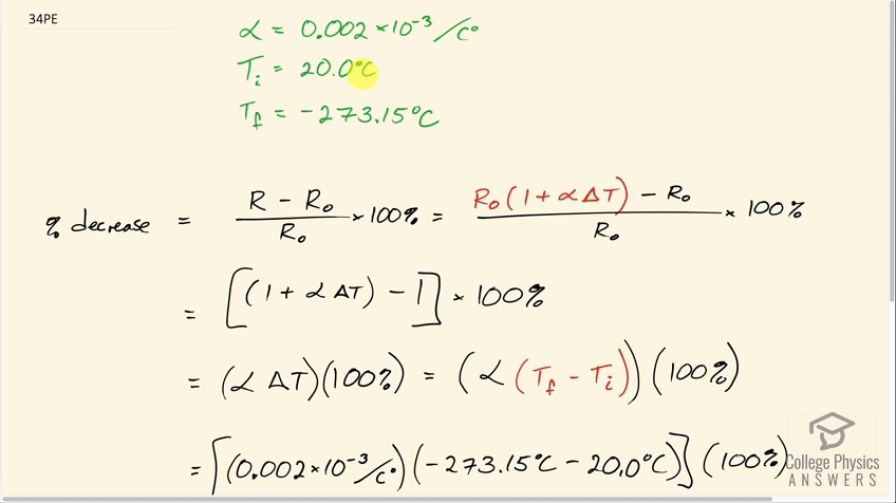 34PE
α = 0.002 × 10⁻³ / C°
Tᵢ = 20.0°C
T_f = -273.15°C
% decrease = (R - R₀)/R₀ × 100% = (R₀(1 + αΔT) - R₀)/R₀ × 100%
= [(1 + αΔT) - 1] × 100%
= (αΔT)(100%) = (α(T_f - Tᵢ))(100%)
= [(0.002×10⁻³/C°)(-273.15°C - 20.0°C)](100%)
College Physics
ANSWERS